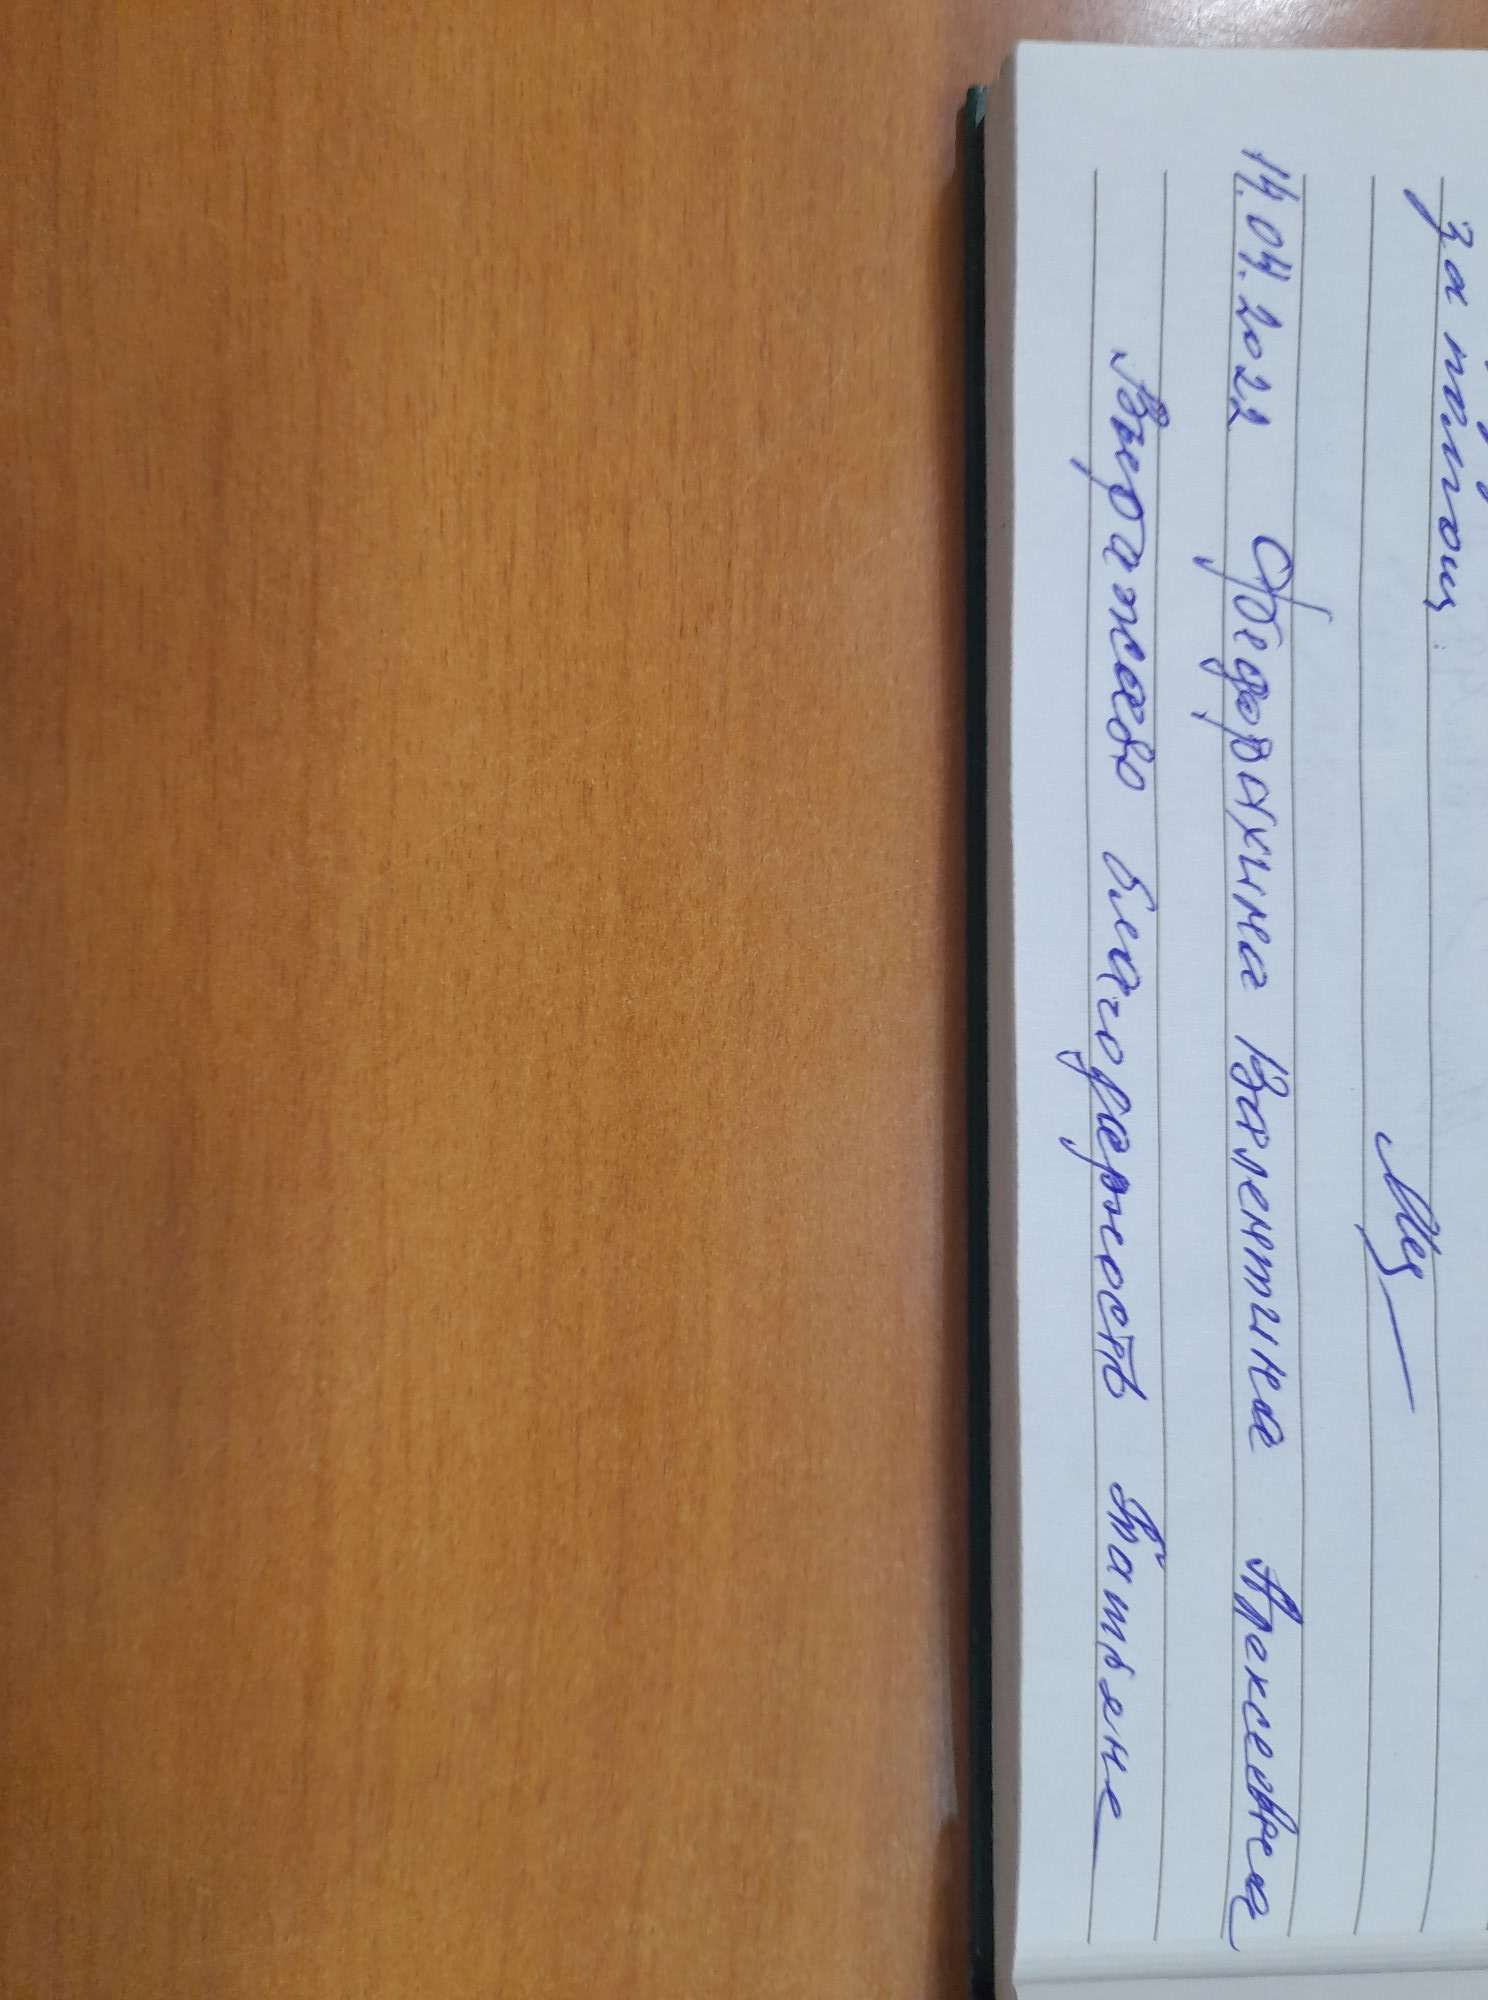 за помощь.
14.04.2022 Валентина Алексеевна
Выражаю благодарность Татьяне